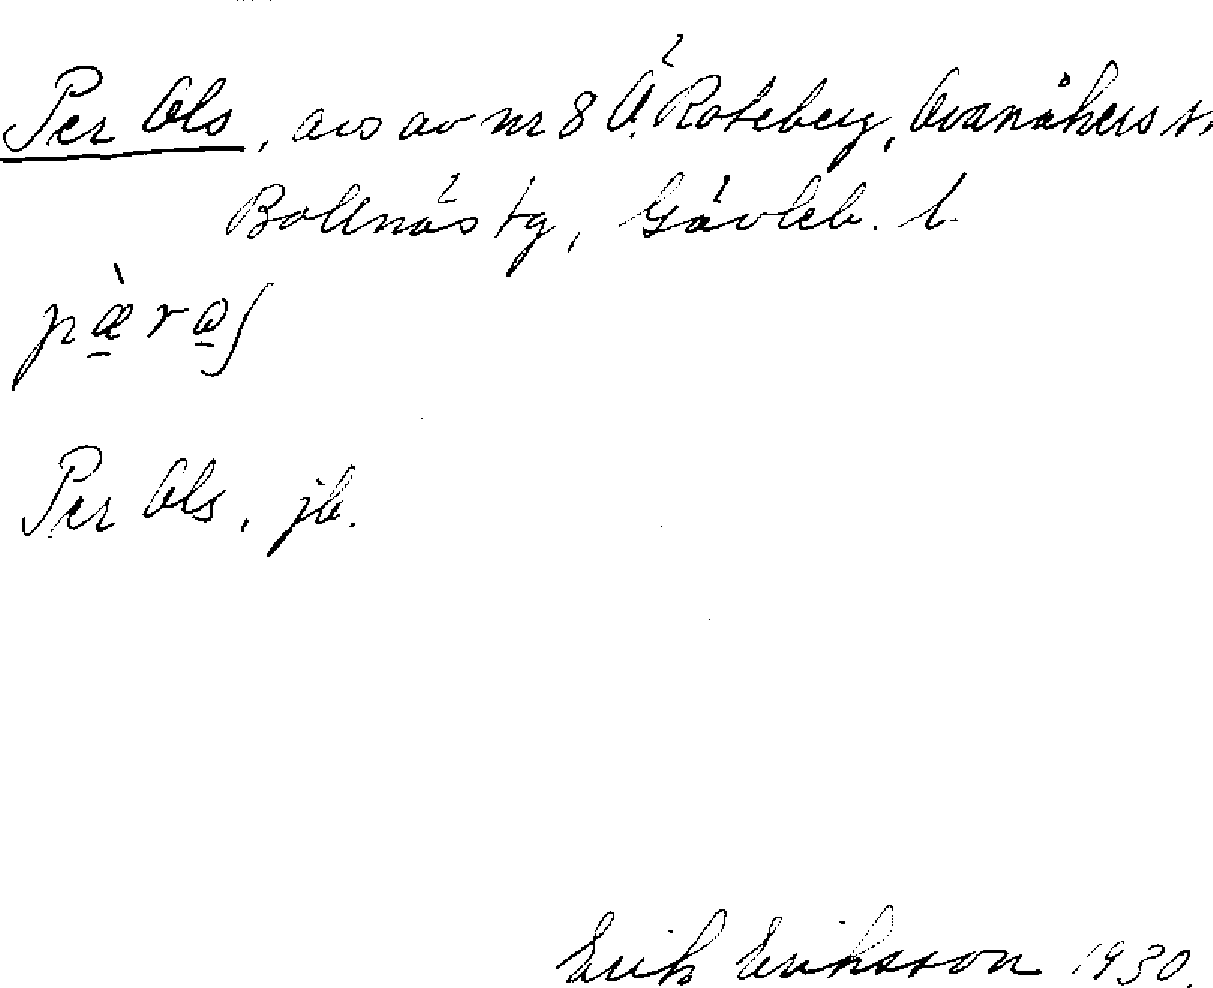 Per Ols, avs av nr 8 Ö. Roteberg, Ovanåkers sn
Bollnäs tg, Gävleb. l.
Per Ols, jb.
Erik Eriksson 1930.